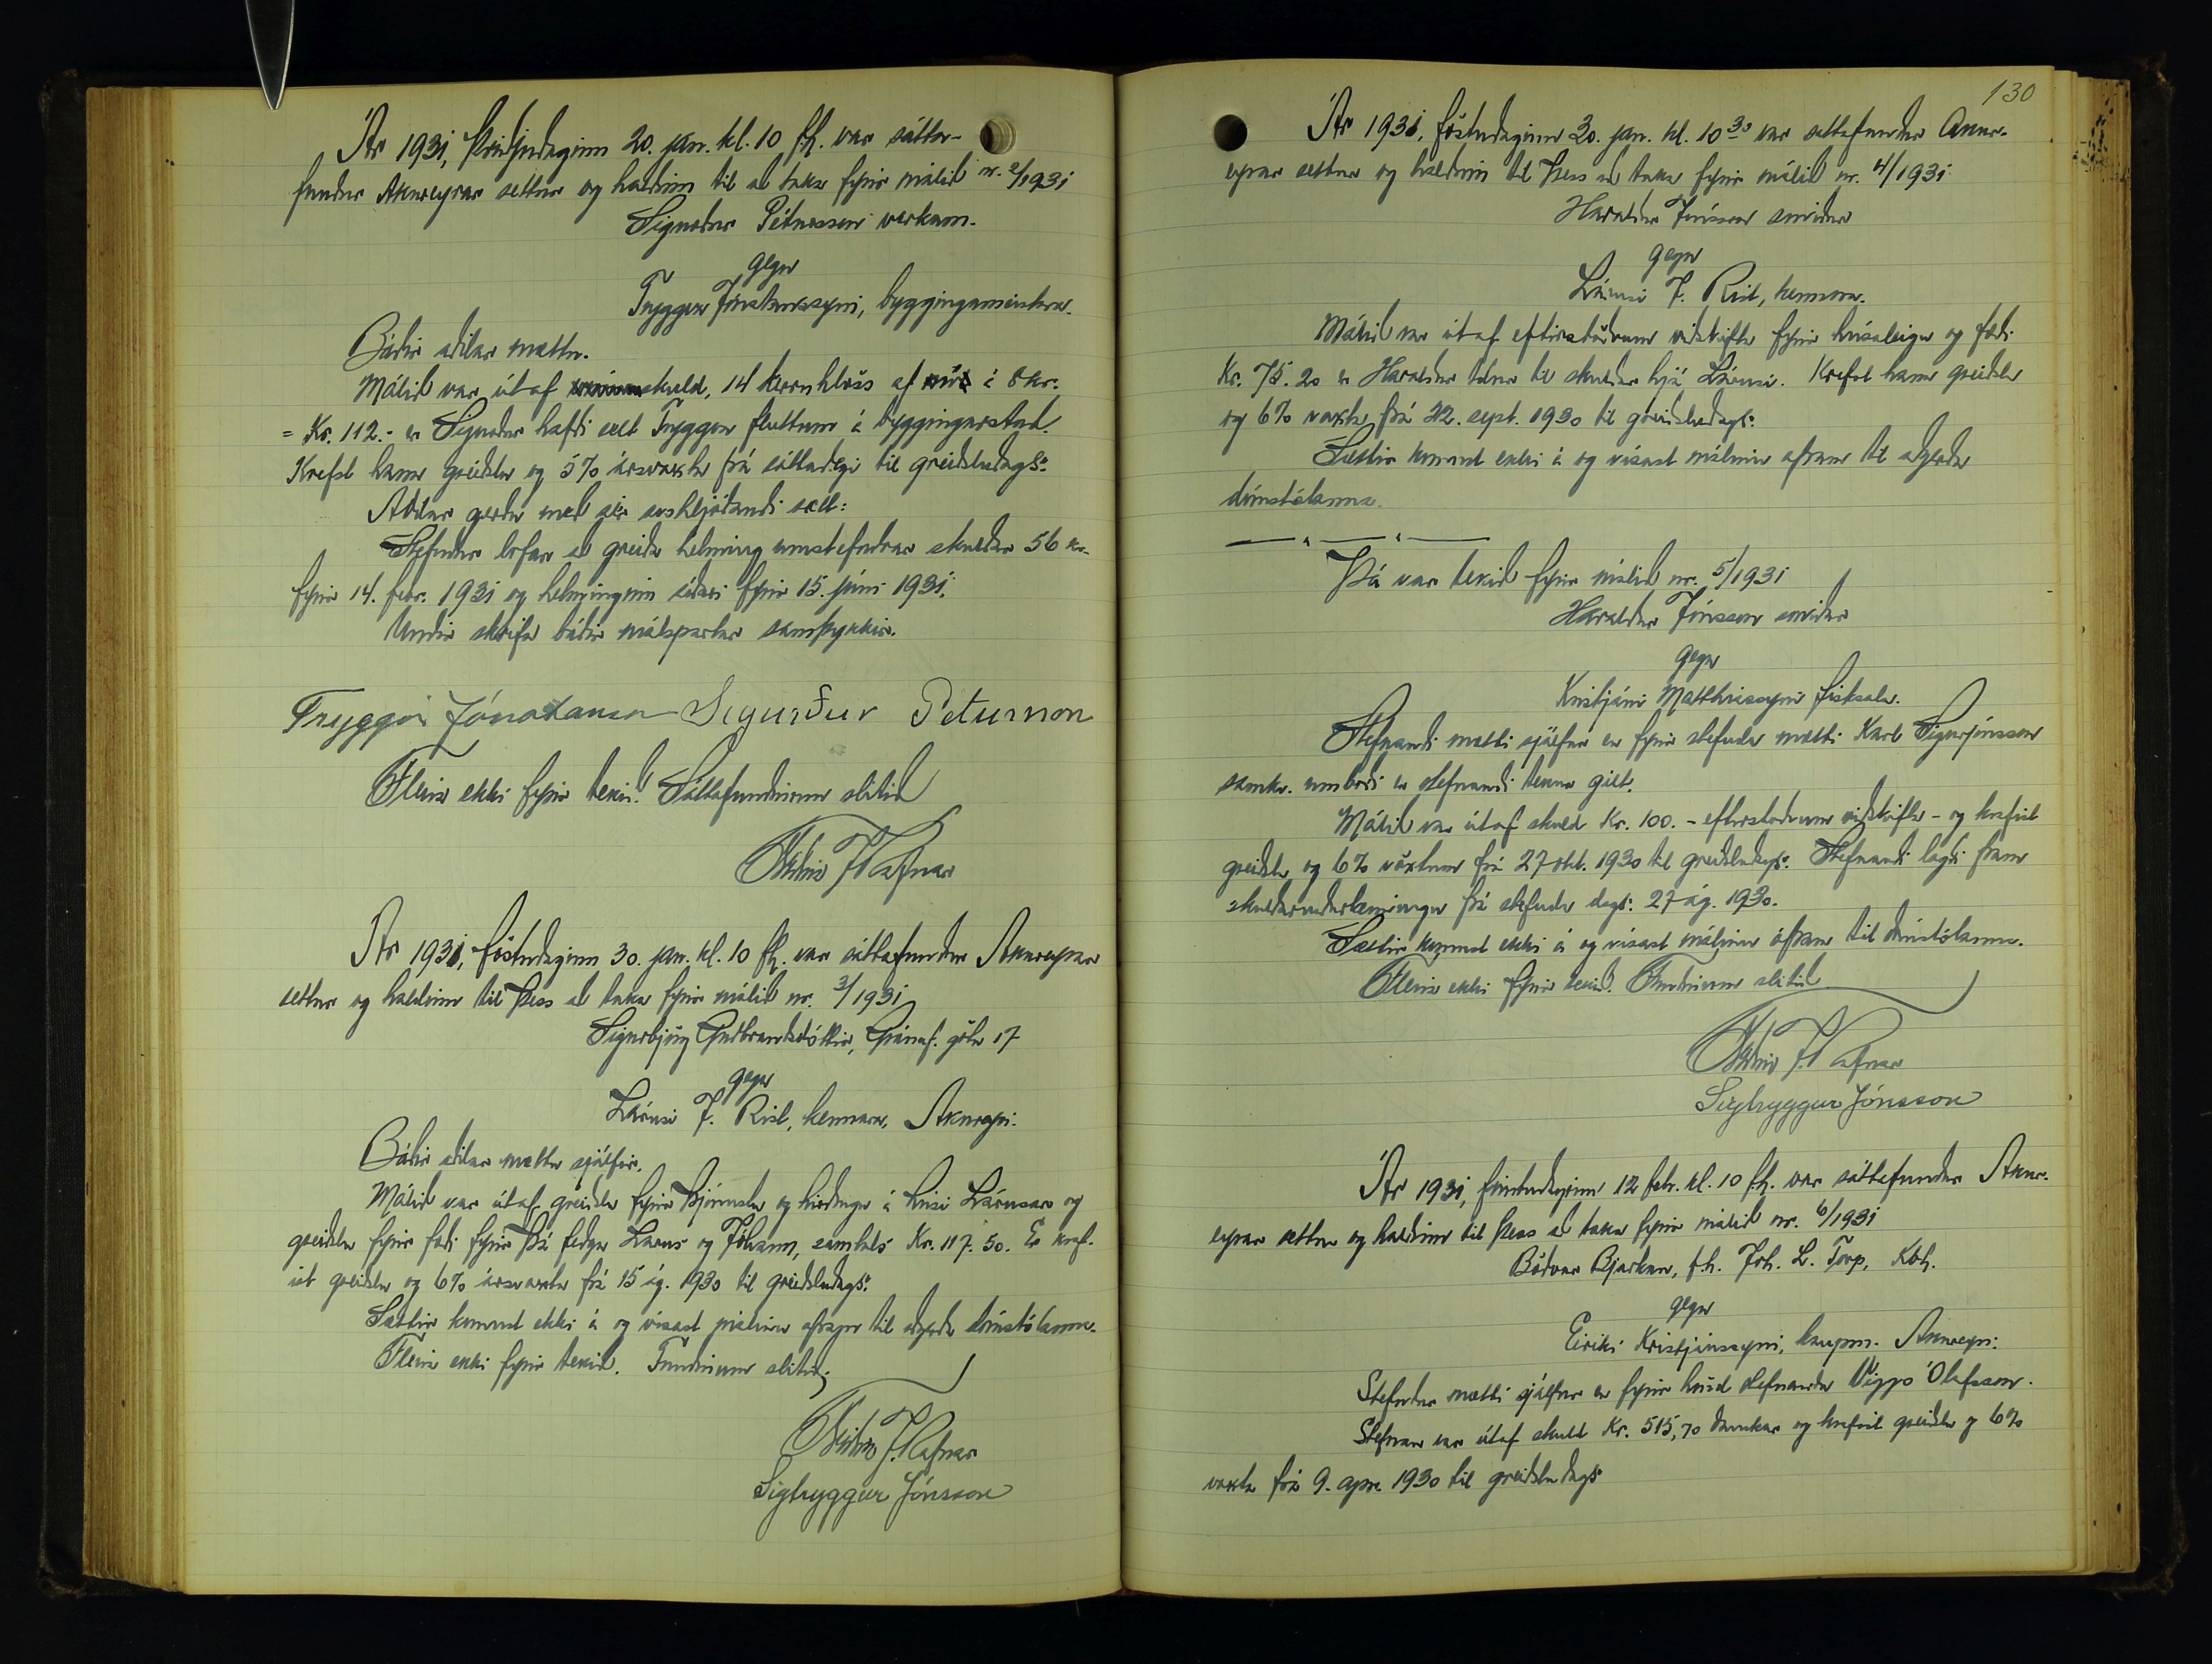 Ár 1931, þriðjudaginn 20. jan. kl. 10 f.h. var sátta-
fundur Akureyrar settur og haldinn til að taka fyrir málið nr. 2/1931
Sigurður Pétursson verkam.
gegn
Tryggva Jónatanssyni, byggingameistara.
Báðir aðilar mættu.
Málið var útaf skuld, 14 kerruhlöss af möl á 8 kr.
= Kr. 112.- er Sigurður hafði selt Tryggva fluttum á byggingarstað.
Krefst hann greiðslu og 5% ársvaxta frá sáttadegi til greiðsludags.
Aðilar gerðu með sér svohljóðandi sætt:
Stefndur lofar að greiða helming umstefndrar skuldar 56 kr.
fyrir 14. febr. 1931 og helminginn síðari fyrir 15. júní 1931.
Undir skrifa báðir málspartar samþykkir.
Tryggvi Jónatansson Sigurður Pétursson
Fleira ekki fyrir tekið. Sáttafundinum slitið
Friðrik J. Rafnar
Ár 1931, föstudaginn 30. jan. kl. 10 fh. var sáttafundur Akureyrar
settur og haldinn til þess að taka fyrir málið nr. 3/1931
Sigurbjörg Guðbrandsdóttir, Gránuf. götu 17
gegn
Lárusi J. Rist, kennara, Akureyri.
Báðir aðilar mættu sjálfir.
Málið var útaf greiðslu fyrir þjónustu og hirðingu á húsi Lárusar og
greiðslu fyrir fæði fyrir þá feðga Lárus og Jóhann, samtals Kr. 117.50. Er kraf-
ist greiðslu og 6% ársvaxta frá 15 ág. 1930 til greiðsludags.
Sættir komust ekki á og vísast málinu áfram til aðgerða dómstólanna.
Fleira ekki fyrir tekið. Fundinum slitið.
Friðrik J. Rafnar
Sigtryggur Jónsson
130
Ár 1931, föstudaginn 30. jan. kl. 10 30 var sáttafundur Akur-
eyrar settur og haldinn til þess að taka fyrir málið nr. 4/1931
Haraldur Jónsson smiður
gegn
Lárusi J. Rist, kennara.
Málið var útaf eftirstöðvum viðskifta fyrir húsaleigu og fæði
Kr. 75.20 er Haraldur telur til skuldar hjá Lárusi. Krefst hann greiðslu
og 6% vaxta frá 22. sept. 1930 til greiðsludags.
Sættir komust ekki á og vísast málinu áfram til aðgerða
dómstólanna.
Þá var tekið fyrir málið nr. 5/1931
Haraldur Jónsson smiður
gegn
Kristjáni Matthíassyni fisksala.
Stefnandi mætti sjálfur en fyrir stefnda mætti Karl Sigurjónsson
samkv. umboði er stefnandi tekur gilt.
Málið var útaf skuld Kr. 100.- eftirstöðvum viðskifta - og krafist
greiðslu og 6% vöxtum frá 27 okt. 1930 til greiðsludags. Stefnandi lagði fram
skuldarviðurkenningu frá stefnda dags. 27 ág. 1930.
Sættir komust ekki á og vísast málinu áfram til dómstólanna.
Fleira ekki fyrir tekið. Fundinum slitið
Friðrik J. Rafnar
Sigtryggur Jónsson
Ár 1931, fimtudaginn 12 febr. kl. 10 f.h. var sáttafundur Akur-
eyrar settur og haldinn til þess að taka fyrir málið nr. 6/1931
Böðvar Bjarkan, f.h. Joh. L. Torp, Kbh.
gegn
Eiríki Kristjánssyni, kaupm. Akureyri.
Stefndur mætti sjálfur en fyrir hönd stefnanda Viggó Ólafsson.
Stefnan var útaf skuld Kr. 515,70 danskar og krafist greiðslu og 6%
vaxta frá 9. apr. 1930 til greiðsludags